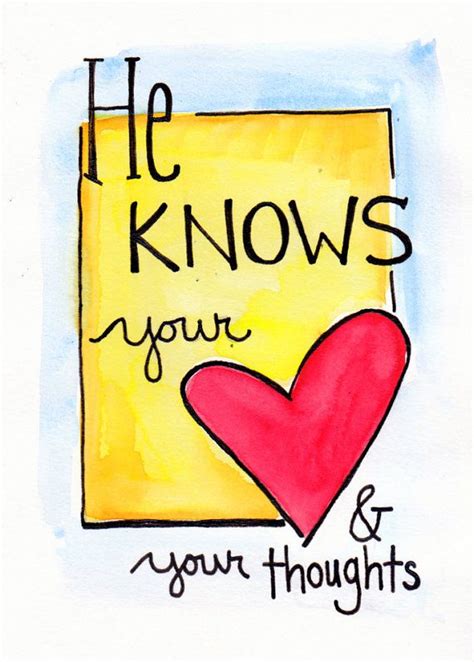 He
KNOWS
your
&
your thoughts